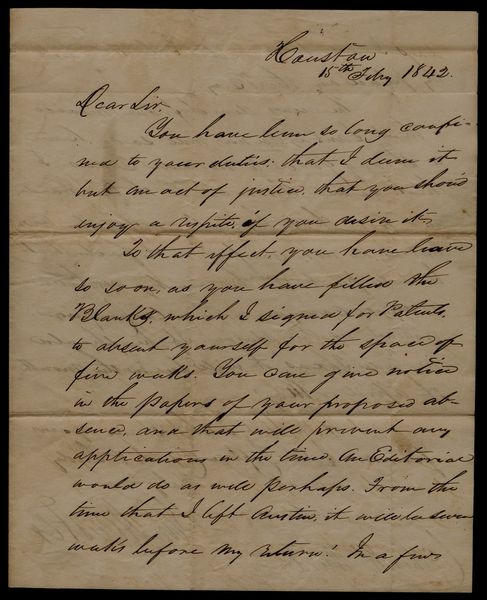 Houston
15th Feby 1842.
Dear Sir.
You have been so long confi-
ned to your duties, that I deem it
but an act of justice, that you should
enjoy a respite, if you desire it.
To that effect, you have leave
so soon, as you have filled the
Blanks, which I signed for Patents,
to absent yourself for the space of
five weeks. You can give notice
in the Papers of your proposed ab-
sence, and that will prevent any
applications in the time. An Editorial
would do as well perhaps. From the
time that I left Austin, it will be seven
weeks before my return! In a few